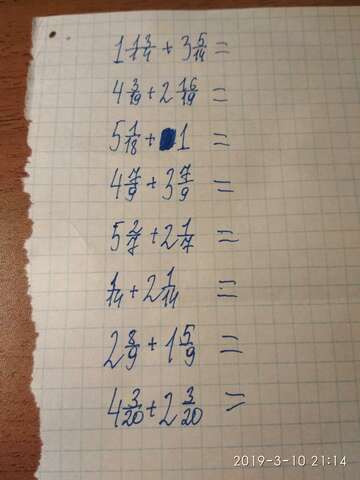 1 13/14 + 3 5/14 =
4 3/19 + 2 16/19 =
5 1/18 + 1 =
4 7/9 + 3 7/9 =
5 2/7 + 2 1/7 =
1/14 + 2 1/14 =
2 8/9 + 1 5/9 =
4 3/20 + 2 3/20 =
2019-3-10 21:14